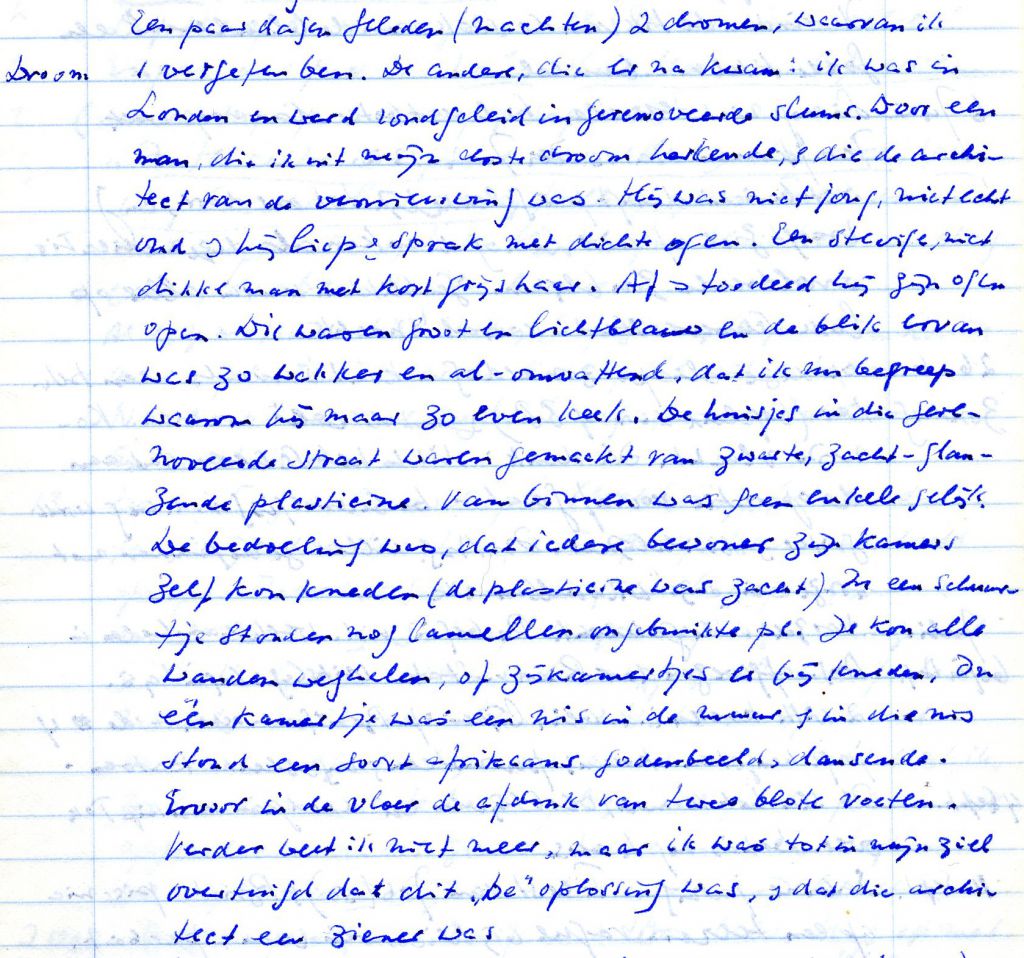 Een paar dagen geleden (nachten) 2 dromen, waarvan ik
Droom 1 vergeten ben. De andere, die er na kwam: ik was in
Londen en werd rondgeleid in gerenoveerde slums. Door een
man, die ik uit mijn eerste droom herkende, & die de archi-
tect van de vernieuwing was. Hij was niet jong, niet echt
oud & hij liep & sprak met dichte ogen. Een stevige, niet
dikke man met kort grijs haar. Af & toe deed hij zijn ogen
open. Die waren groot en lichtblauw en de blik ervan
was zo wakker en al-omvattend, dat ik nu begreep
waarom hij maar zo even keek. De huisjes in die gere-
noveerde straat waren gemaakt van zwarte, zacht-glan-
zende plasticine. Van binnen was geen enkele gelijk.
De bedoeling was, dat iedere bewoner zijn kamers
zelf kon kneden (de plasticine was zacht). In een schuur-
tje stonden nog lamellen ongebruikte pl. Je kon alle
wanden weghalen, of zijkamertjes er bij kneden. In
één kamertje was een nis in de muur & in die nis
stond een soort afrikaans godenbeeld, dansende.
Ervoor in de vloer de afdruk van twee blote voeten.
Verder weet ik niet meer, maar ik was tot in mijn ziel
overtuigd dat dit „De" oplossing was, & dat die archi-
tect een ziener was